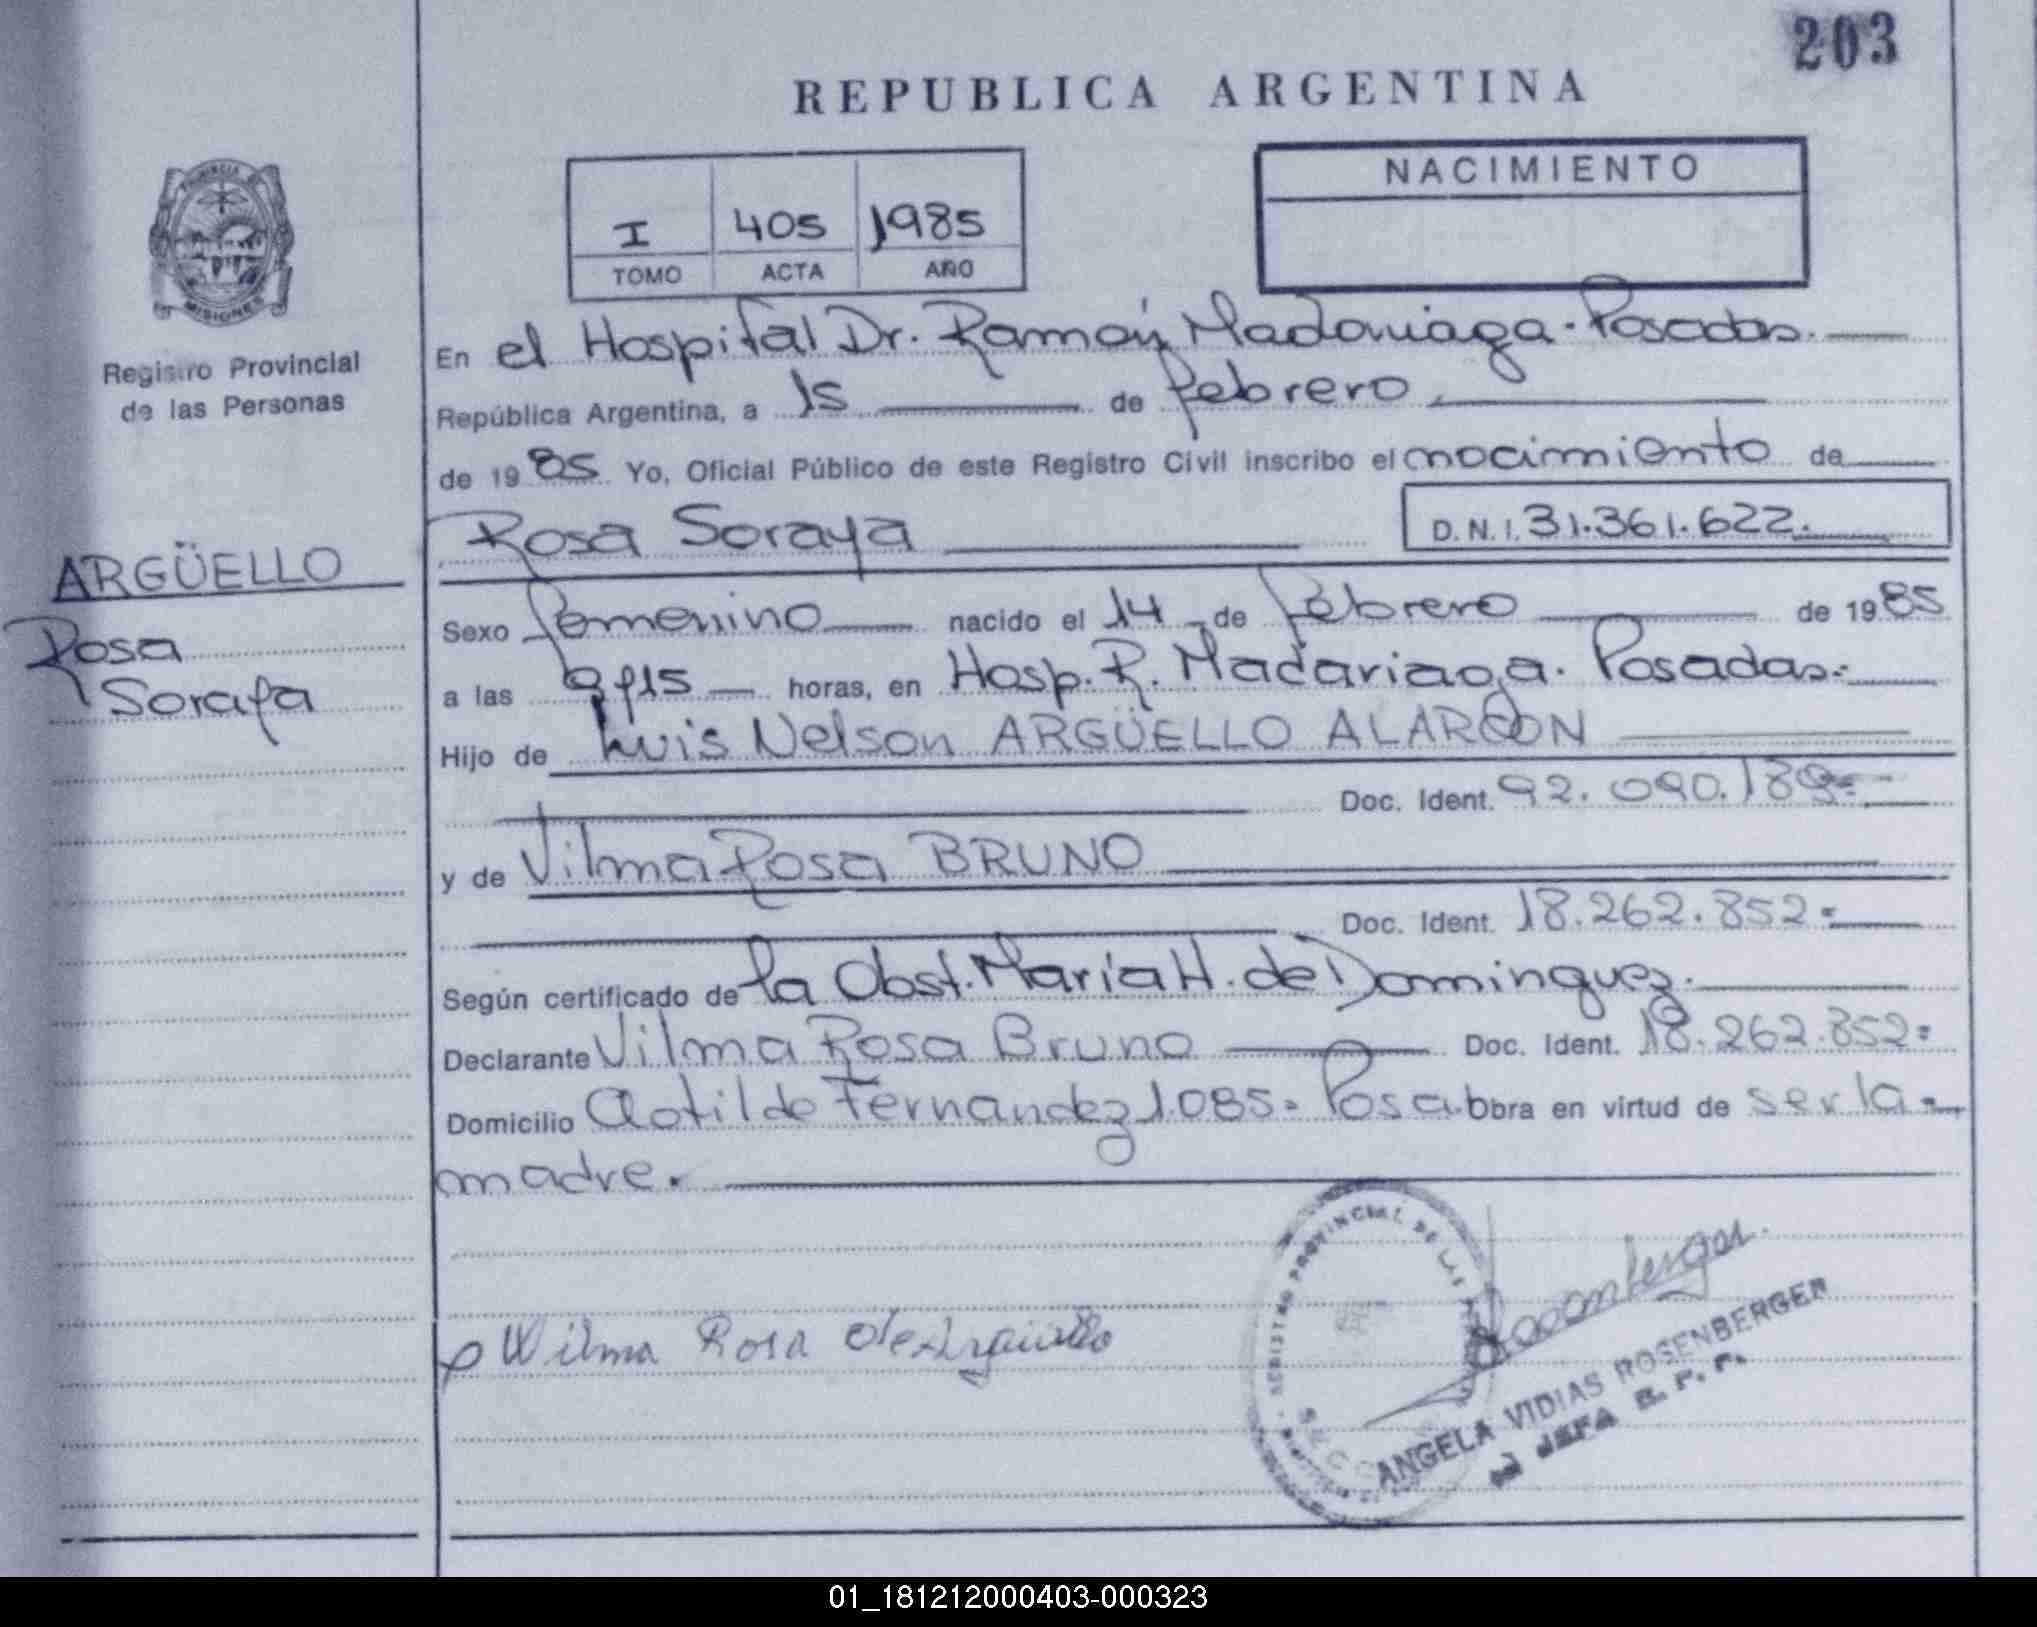 203
REPUBLICA ARGENTINA
I 405 1985
TOMO ACTA AÑO
NACIMIENTO
PROVINCIA
MISIONES
Registro Provincial
de las Personas
ARGÜELLO
Rosa
Soraya
En el Hospital Dr. Ramón Madariaga - Posadas.
República Argentina, a 15 de febrero
de 1985 Yo, Oficial Público de este Registro Civil inscribo el nacimiento de
Rosa Soraya D.N.I. 31.361.622.
Sexo femenino nacido el 14 de febrero de 1985
a las horas, en Hosp. R. Madariaga. Posadas.-
Hijo de Luis Nelson ARGÜELLO ALARCON
Doc. Ident. 92.090.189=
y de Vilma Rosa BRUNO
Doc. Ident. 18.262.852=
Según certificado de la Obst. María H. de Dominguez.
Declarante Vilma Rosa Bruno Doc. Ident. 18.262.852=
Domicilio Clotilde Fernandez 1.085= Posa. Obra en virtud de ser la
madre.
REGISTRO PROVINCIAL DE LAS
Wilma Rosa de Arguello
ANGELA VIDIAS ROSENBERGER
JEFA R. P. P.
01_181212000403-000323